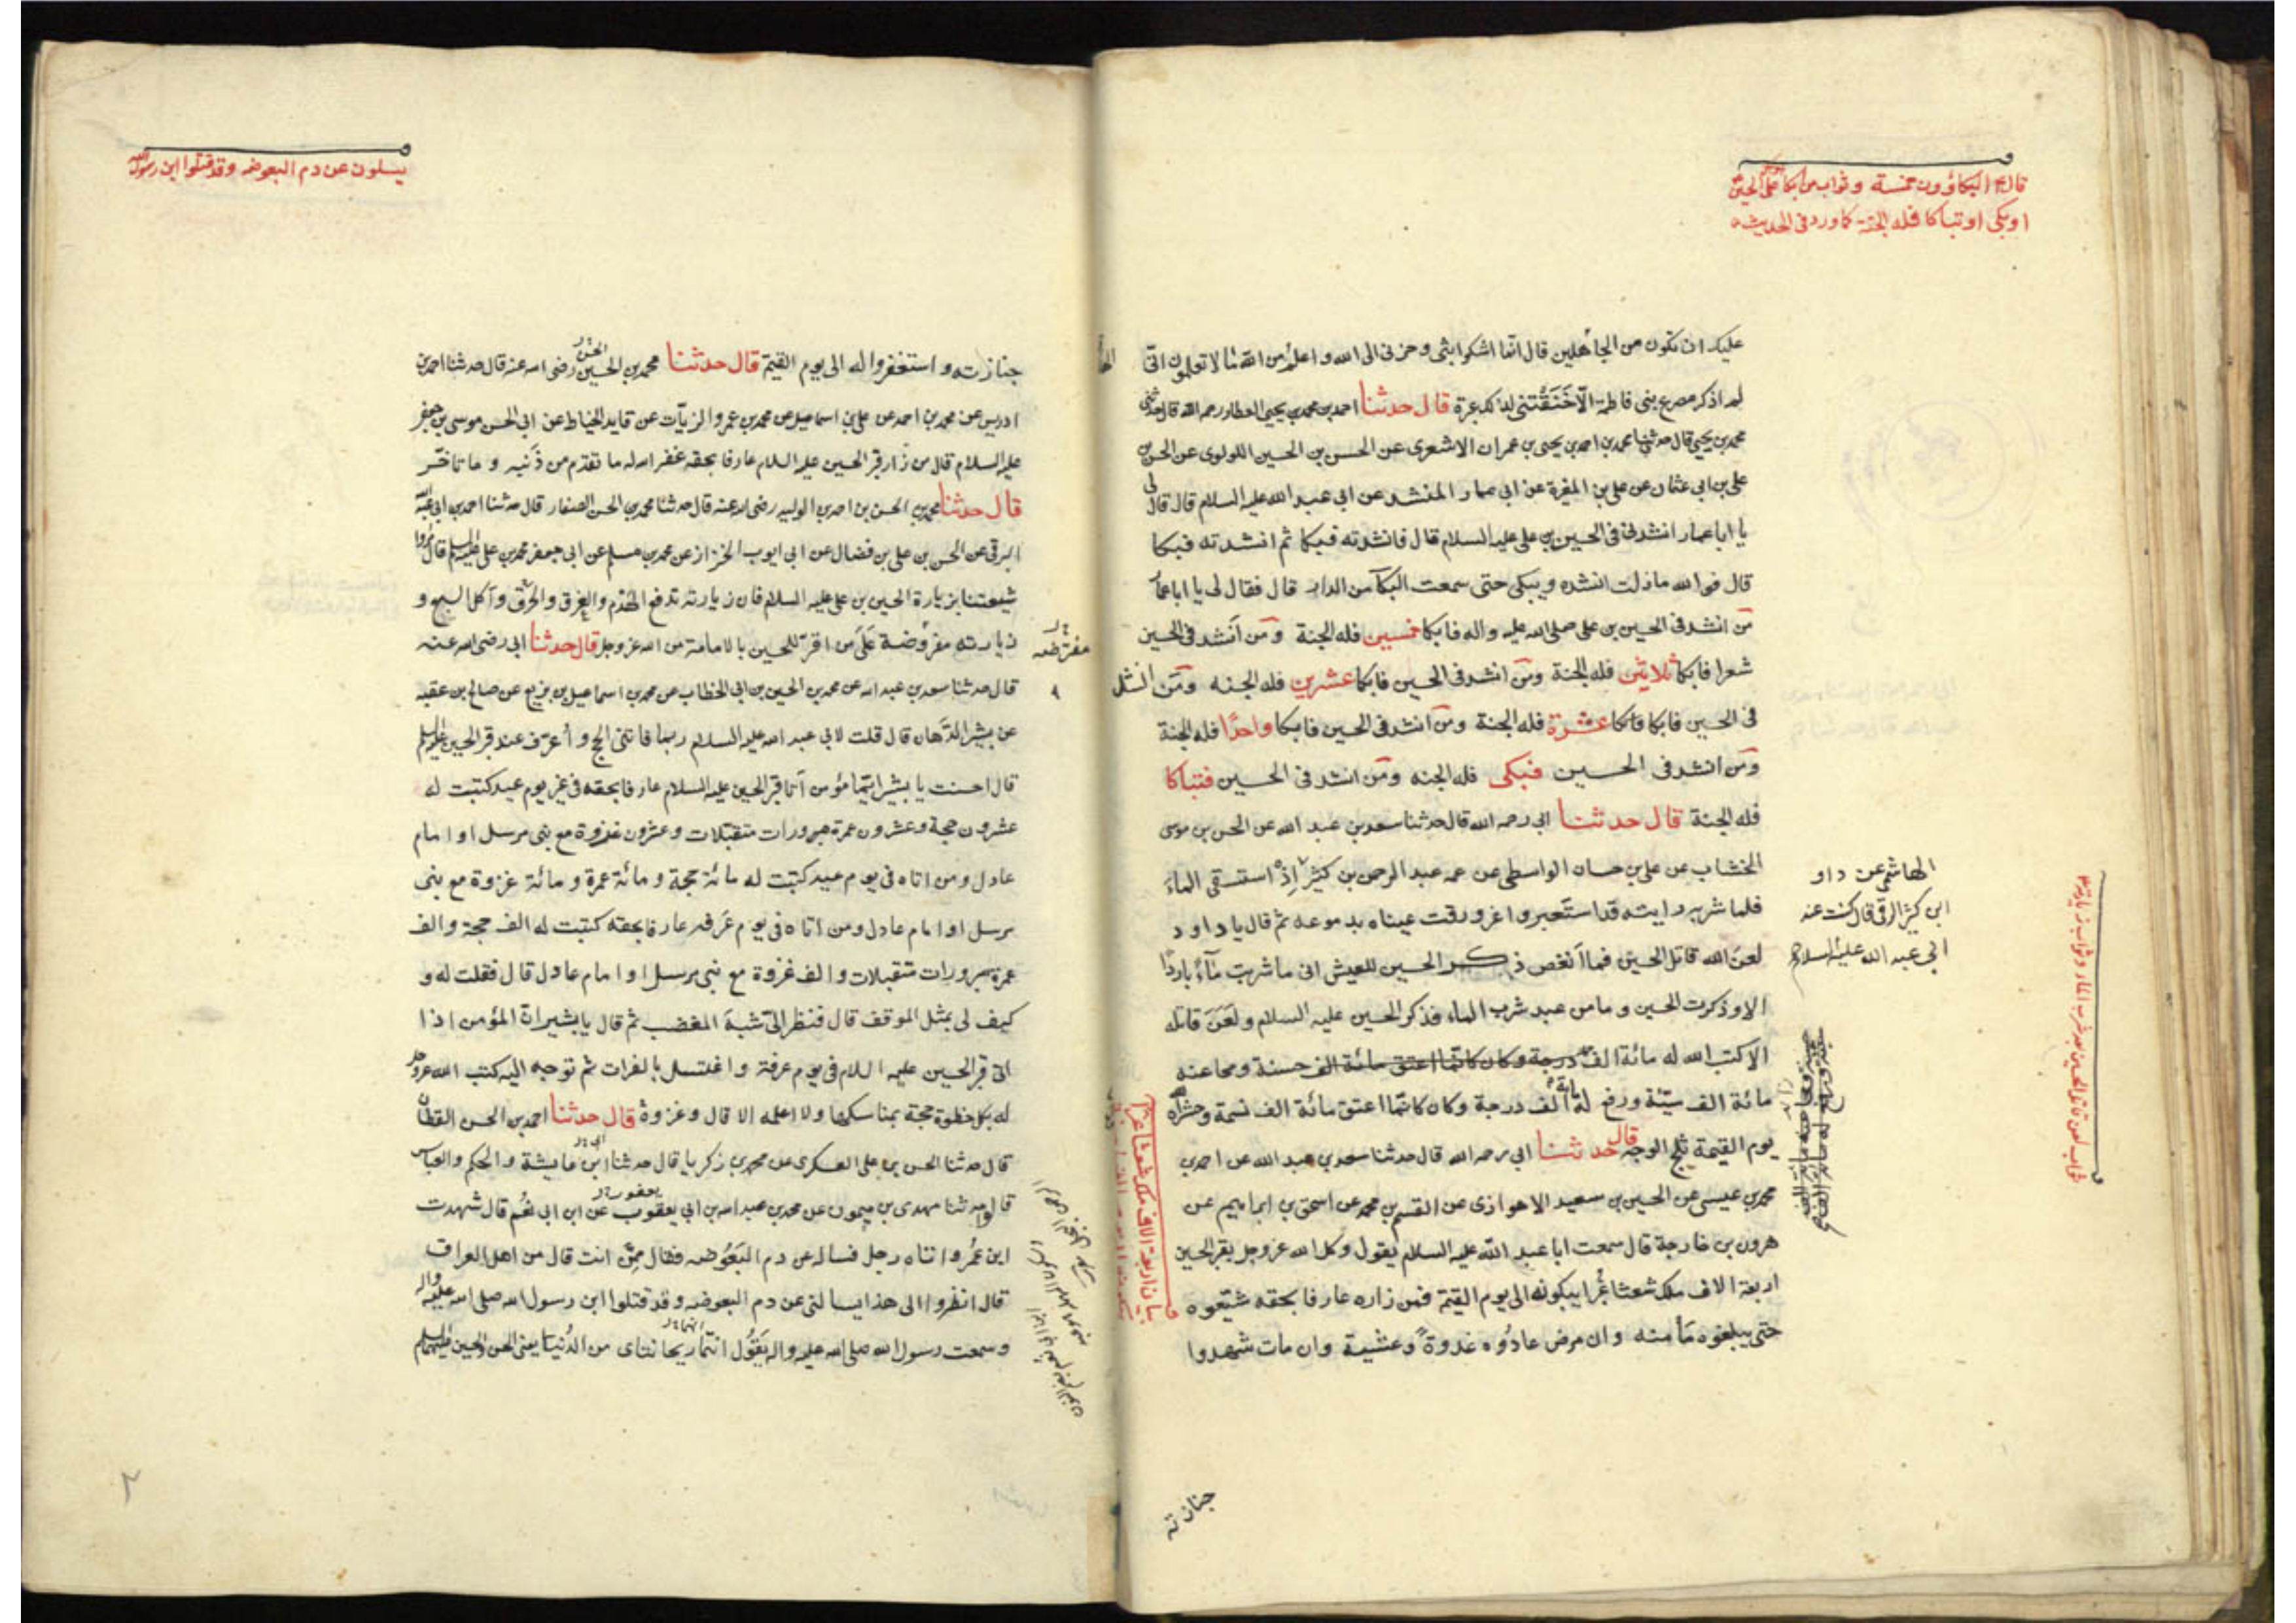 قال ع البكاؤون خمسة وثواب من ابكا على الحسين
او بكى او تباكا فله الجنة كما ورد في الحديث
عليك ان تكون من الجاهلين قال انما اشكوا بثى وحزنى الى الله واعلم من الله ما لا تعلمون انى
لم اذكر مصرع بنى فاطمة الا خنقتنى لذلك عبرة قال حدثنا احمد بن محمد بن يحيى العطار رحمه الله قال حدثنى
محمد بن يحيى قال حدثنا محمد بن احمد بن يحيى بن عمران الاشعرى عن الحسن بن الحسين اللولوى عن الحسن بن
على بن ابى عثمان عن على بن المغيرة عن ابى عمار المنشد عن ابى عبد الله عليه السلام قال قال لى
يا ابا عمار انشدنى فى الحسين بن على عليه السلام قال فانشدته فبكا ثم انشدته فبكا
قال فوالله ما زلت انشده ويبكى حتى سمعت البكآ من الدار قال فقال لى يا ابا عمار
من انشد فى الحسين بن على صلى الله عليه واله فابكا خمسين فله الجنة ومن انشد فى الحسين
شعرا فابكا ثلاثين فله الجنة ومن انشد فى الحسين فابكا عشرين فله الجنه ومن انشد
فى الحسين فابكا فابكا عشرة فله الجنة ومن انشد فى الحسين فابكا واحدا فله الجنة
ومن انشد فى الحسين فبكى فله الجنه ومن انشد فى الحسين فتباكا
فله الجنة قال حدثنا ابى رحمه الله قال حدثنا سعد بن عبد الله عن الحسن بن موسى
الخشاب عن على بن حسان الواسطى عن عمه عبد الرحمن بن كثير اذ استسقى الماء
الهاشمى عن داود
ابن كثير الرقى قال كنت عند
ابى عبد الله عليه السلام
فلما شربه رايته قد استعبر واغرورقت عيناه بدموعه ثم قال يا داود
لعن الله قاتل الحسين فما انغص ذكر الحسين للعيش انى ما شربت مآء باردا
الا وذكرت الحسين وما من عبد شرب الماء فذكر الحسين عليه السلام ولعن قاتله
الا كتب الله له مائة الف درجة وكان كانما اعتق مائة الف حسنة ومحا عنه
مائة الف سيئة ورفع له مائة الف درجة وكان كانما اعتق مائة الف نسمة وحشره الله
يوم القيمة ثلج الوجه قال حدثنا ابى رحمه الله قال حدثنا سعد بن عبد الله عن احمد بن
محمد بن عيسى عن الحسين بن سعيد الاهوازى عن القسم بن محمد عن اسحق بن ابراهيم عن
هرون بن خارجة قال سمعت ابا عبد الله عليه السلام يقول وكل الله عز وجل بقبر الحسين
اربعة الاف ملك شعثا غبرا يبكونه الى يوم القيمة فمن زاره عارفا بحقه شيعوه
حتى يبلغوه مأمنه وان مرض عادوه غدوة وعشية وان مات شهدوا
جنازته
ثواب لعن قاتل الحسين بعد شرب الماء وثواب زيارته
بيان اربعة الاف ملك شعثا غبرا
يسلون عن دم البعوضه وقد قتلوا ابن رسول الله
جنازته واستغفروا له الى يوم القيمة قال حدثنا محمد بن الحسين رضى الله عنه قال حدثنا احمد بن
ادريس عن محمد بن احمد عن على بن اسماعيل عن محمد بن عمرو الزيات عن قايد الخياط عن ابى الحسن موسى بن جعفر
عليه السلام قال من زار قبر الحسين عليه السلام عارفا بحقه غفر الله له ما تقدم من ذنبه وما تاخر
قال حدثنا محمد بن الحسن بن احمد بن الوليد رضى الله عنه قال حدثنا محمد بن الحسن الصفار قال حدثنا احمد بن ابى عبد الله
البرقى عن الحسن بن على بن فضال عن ابى ايوب الخزاز عن محمد بن مسلم عن ابى جعفر محمد بن على عليه السلم قال مروا
شيعتنا بزيارة الحسين بن على عليه السلام فان زيارته تدفع الهدم والغرق والحرق وآكل السبع و
زيارته مفروضة على من اقر للحسين بالامامة من الله عز وجل قال حدثنا ابى رضى الله عنه
مفترضه
قال حدثنا سعد بن عبد الله عن محمد بن الحسين بن ابى الخطاب عن محمد بن اسماعيل بن بزيع عن صالح بن عقبه
عن بشير الدهان قال قلت لابى عبد الله عليه السلام ربما فاتنى الحج وأعرف عند قبر الحسين عليه السلم
قال احسنت يا بشير ايما مؤمن آتا قبر الحسين عليه السلام عارفا بحقه فى غير يوم عيد كتبت له
عشرون حجة وعشرون عمرة مبرورات متقبلات وعشرون غزوة مع نبى مرسل او امام
عادل ومن اتاه فى يوم عيد كتبت له مائة حجة ومائة عمرة ومائة غزوة مع نبى
مرسل او امام عادل ومن اتاه فى يوم عرفه عارفا بحقه كتبت له الف حجة والف
عمرة مبرورات متقبلات والف غزوة مع نبى مرسل او امام عادل قال فقلت له و
كيف لى بمثل الموقف قال فنظر الى شبه المغضب ثم قال يا بشير ان المؤمن اذا
اتى قبر الحسين عليه السلام فى يوم عرفة واغتسل بالفرات ثم توجه اليه كتب الله عز وجل
له بكل خطوة حجة بمناسكها ولا اعلمه الا قال وغزوة قال حدثنا احمد بن الحسن القطان
قال حدثنا الحسن بن على العسكرى عن محمد بن زكريا قال حدثنا ابن عايشة والحكم والعباس
قالوا حدثنا مهدى بن ميمون عن محمد بن عبد الله بن ابى يعقوب عن ابن ابى نعم قال شهدت
ابن عمر واتاه رجل فساله عن دم البعوضه فقال ممن انت قال من اهل العراق
قال انظروا الى هذا يسالنى عن دم البعوضه وقد قتلوا ابن رسول الله صلى الله عليه واله
وسمعت رسول الله صلى الله عليه واله يقول انما ريحانتاى من الدنيا يعنى الحسن والحسين عليهما السلم